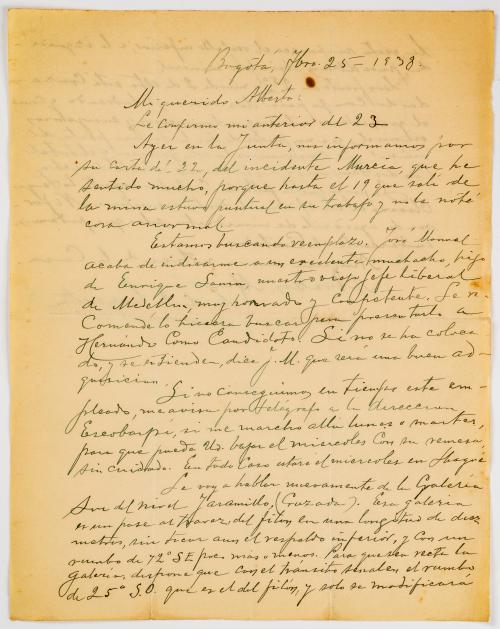 Bogotá, Fbro. 25 - 1938.
Mi querido Alberto:
Le confirmo mi anterior del 23
Ayer en la Junta, nos informamos por
su carta del 22, del incidente Murcia, que he
sentido mucho, porque hasta el 19 que salí de
la mina estuvo puntual en su trabajo y no le noté
cosa anormal.
Estamos buscando reemplazo. José Manuel
acaba de indicarme a un excelente muchacho, hijo
de Enrique, nuestro viejo Jefe liberal
de Medellín, muy honrado y competente. Le re-
comendé lo hiciera buscar para presentarlo a
Hernando como Candidato. Si no se ha coloca-
do, y se entienden, dice J. M. que será una buena ad-
quisición.
Si no conseguimos en tiempo este em-
pleado, me avisa por telégrafo a la dirección
Escobarpi, si me marcho allá lunes o martes,
para que pueda Ud. bajar el miércoles con su remesa,
sin cuidado. En todo caso estaré el miércoles en Ibagué
Le voy a hablar nuevamente de la Galería
Sur del nivel Jaramillo, (Cruzada). Esa galería
es un pase al travez del filón, en una longitud de diez
metros, sin tocar aun el respaldo inferior, y con un
rumbo de 72° SE poco mas o menos. Para que sea recta la
Galería, dispone que con el tránsito señalen el rumbo
de 25° S.O. que es el del filón, y solo se modificará